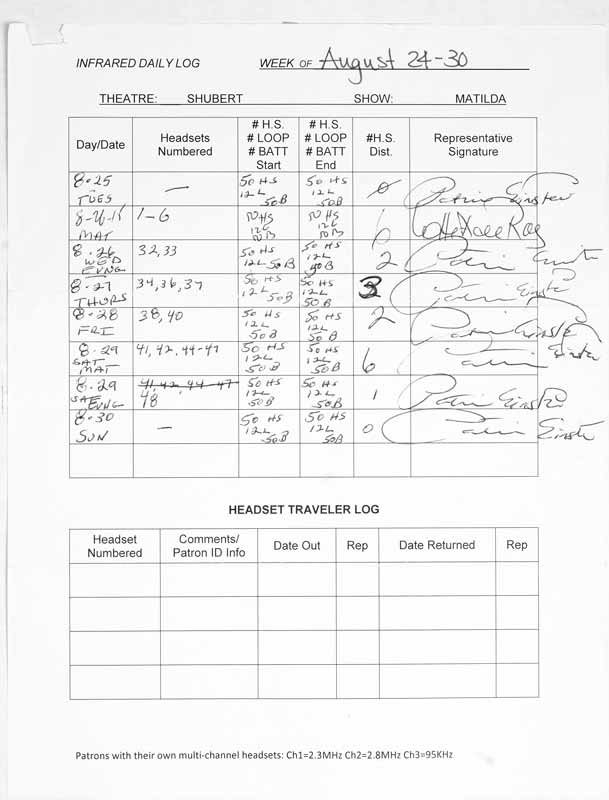 INFRARED DAILY LOG WEEK OF August 24-30
THEATRE: SHUBERT SHOW: MATILDA
Day/Date
Headsets
Numbered
# H.S.
# LOOP
# BATT
Start
# H.S.
# LOOP
# BATT
End
#H.S.
Dist.
Representative
Signature
8.25
TUES
—
50 HS
12 L
50B
50 HS
12 L
50B
0
MAT
1-6
HS
HS
6
8.26
WED
EVNG
32,33
50 HS
12L 50B
50 HS
12L
50B
2
8.27
THURS
34,36,37
50 HS
12L
50B
50 HS
12L
50B
3
8.28
FRI
38,40
50 HS
12L
50B
50 HS
12L
50B
2
8.29
SAT
MAT
41,42,44-47
50 HS
12L
50B
50 HS
12L
50B
6
8.29
SAT
EVNG
41,42,44-47
48
50 HS
12L
50B
50 HS
12L
50B
1
8.30
SUN
—
50 HS
12L
50B
50 HS
12L
50B
0
HEADSET TRAVELER LOG
Headset
Numbered
Comments/
Patron ID Info
Date Out
Rep
Date Returned
Rep
Patrons with their own multi-channel headsets: Ch1=2.3MHz Ch2=2.8MHz Ch3=95KHz